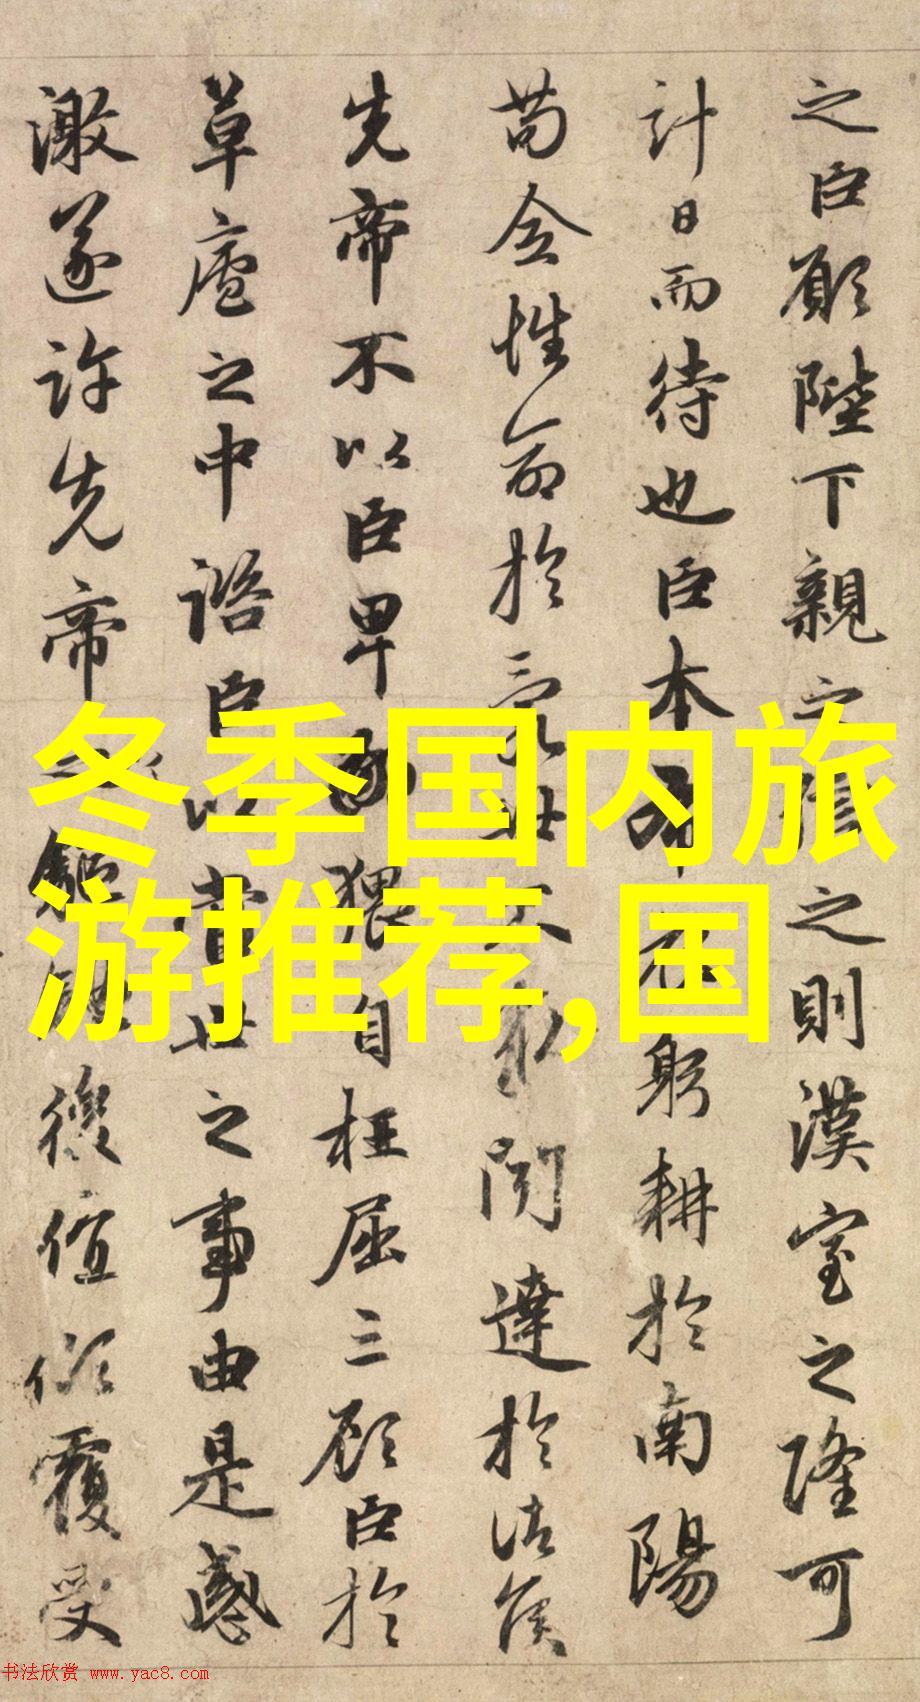 之臣願陛下親之信之則漢室之隆可
計日而待也臣本布衣躬耕於南陽
苟全性命於亂世不求聞達於諸侯
先帝不以臣卑鄙猥自枉屈三顧臣於
草廬之中諮臣以當世之事由是感
激遂許先帝以驅馳後值傾覆受
冬季国内旅
游推荐,国
书法欣赏 www.yac8.com